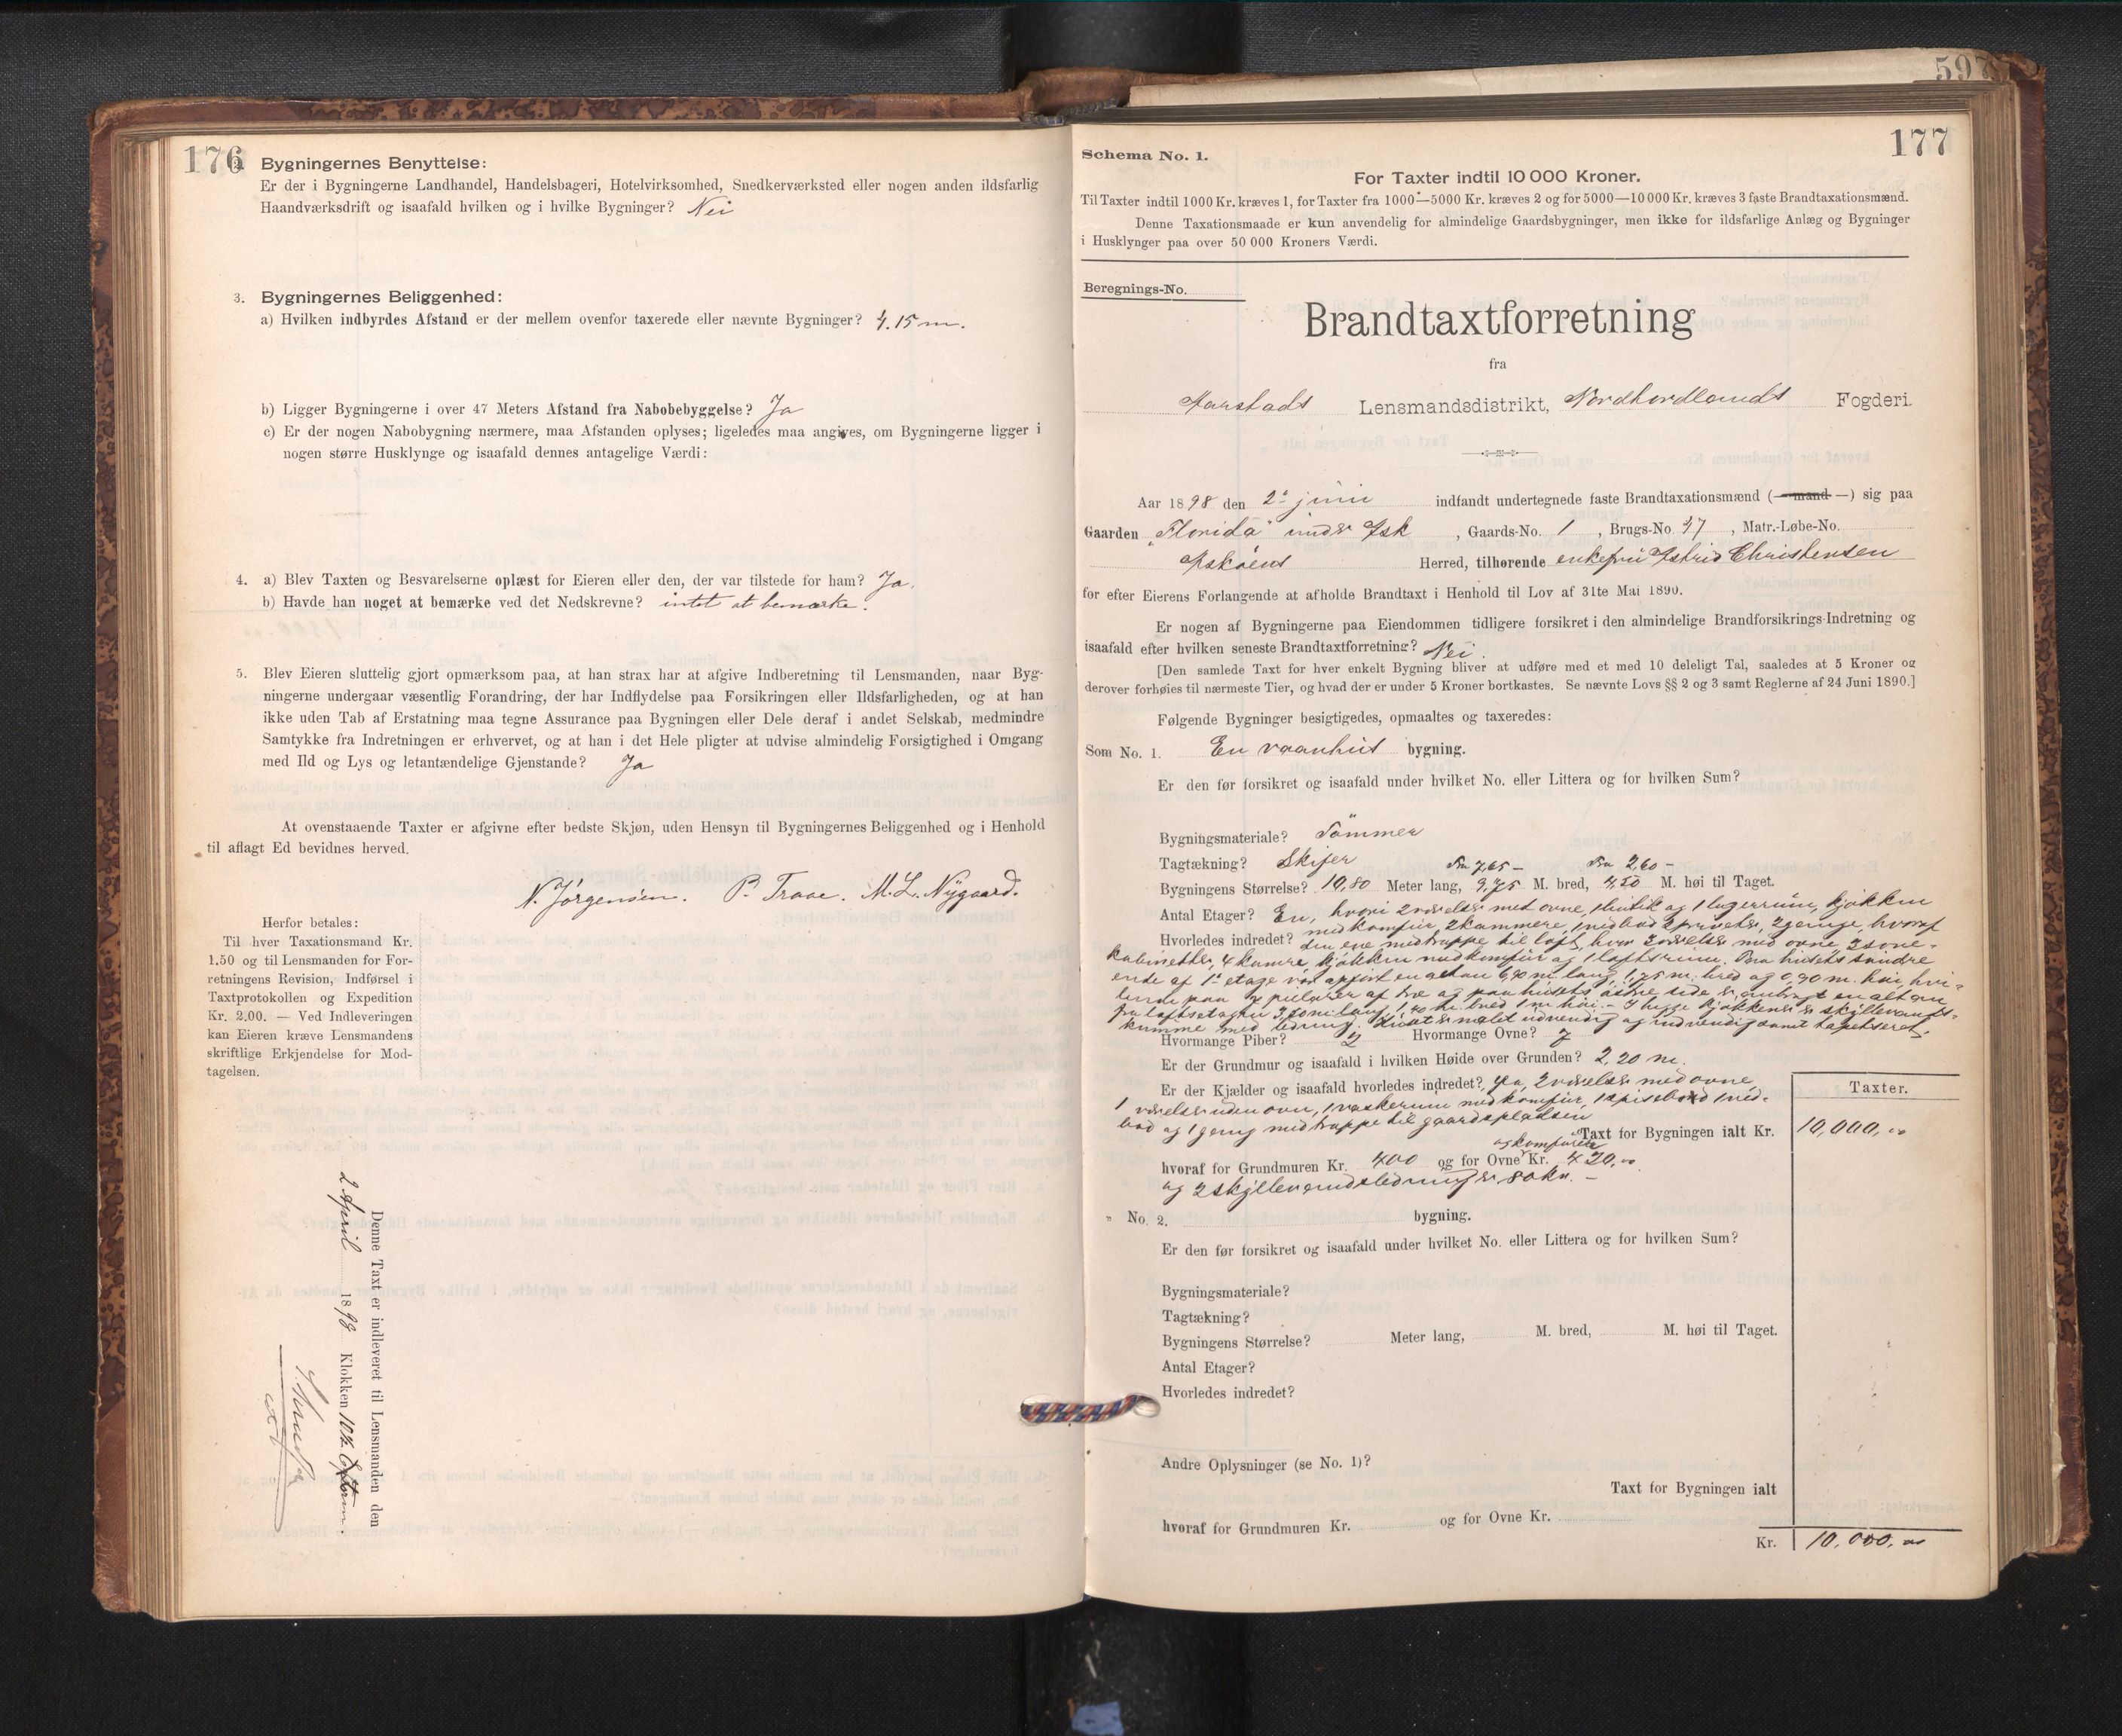 176
2. Bygningernes Benyttelse:
Er der i Bygningerne Landhandel, Handelsbageri, Hotelvirksomhed, Snedkerværksted eller nogen anden ildsfarlig
Haandværksdrift og isaafald hvilken og i hvilke Bygninger? Nei
3. Bygningernes Beliggenhed:
a) Hvilken indbyrdes Afstand er der mellem ovenfor taxerede eller nævnte Bygninger? 4.15 m.
b) Ligger Bygningerne i over 47 Meters Afstand fra Nabobebyggelse? Ja
c) Er der nogen Nabobygning nærmere, maa Afstanden oplyses; ligeledes maa angives, om Bygningerne ligger i
nogen større Husklynge og isaafald dennes antagelige Værdi:
4. a) Blev Taxten og Besvarelserne oplæst for Eieren eller den, der var tilstede for ham? Ja.
b) Havde han noget at bemærke ved det Nedskrevne? intet at bemærke.
5. Blev Eieren sluttelig gjort opmærksom paa, at han strax har at afgive Indberetning til Lensmanden, naar Byg-
ningerne undergaar væsentlig Forandring, der har Indflydelse paa Forsikringen eller Ildsfarligheden, og at han
ikke uden Tab af Erstatning maa tegne Assurance paa Bygningen eller Dele deraf i andet Selskab, medmindre
Samtykke fra Indretningen er erhvervet, og at han i det Hele pligter at udvise almindelig Forsigtighed i Omgang
med Ild og Lys og letantændelige Gjenstande? Ja
At ovenstaaende Taxter er afgivne efter bedste Skjøn, uden Hensyn til Bygningernes Beliggenhed og i Henhold
til aflagt Ed bevidnes herved.
N. Jørgensen. P. Traae. M. L. Nygaard.
Herfor betales:
Til hver Taxationsmand Kr.
1.50 og til Lensmanden for For-
retningens Revision, Indførsel i
Taxtprotokollen og Expedition
Kr. 2.00. — Ved Indleveringen
kan Eieren kræve Lensmandens
skriftlige Erkjendelse for Mod-
tagelsen.
Denne Taxt er indleveret til Lensmanden den
2 April 1898 Klokken 10½
597
177
Schema No. 1.
For Taxter indtil 10 000 Kroner.
Til Taxter indtil 1000 Kr. kræves 1, for Taxter fra 1000—5000 Kr. kræves 2 og for 5000—10 000 Kr. kræves 3 faste Brandtaxationsmænd.
Denne Taxationsmaade er kun anvendelig for almindelige Gaardsbygninger, men ikke for ildsfarlige Anlæg og Bygninger
i Husklynger paa over 50 000 Kroners Værdi.
Beregnings-No.
Brandtaxtforretning
fra
Aarstads Lensmandsdistrikt, Nordhordlands Fogderi.
Aar 1898 den 2' juni indfandt undertegnede faste Brandtaxationsmænd (— mand —) sig paa
Gaarden "Florida" under Ask, Gaards-No. 1, Brugs-No. 47, Matr.-Løbe-No.
Askøens Herred, tilhørende enkefru Astrid Christensen
for efter Eierens Forlangende at afholde Brandtaxt i Henhold til Lov af 31te Mai 1890.
Er nogen af Bygningerne paa Eiendommen tidligere forsikret i den almindelige Brandforsikrings-Indretning og
isaafald efter hvilken seneste Brandtaxtforretning? Nei.
[Den samlede Taxt for hver enkelt Bygning bliver at udføre med et med 10 deleligt Tal, saaledes at 5 Kroner og
derover forhøies til nærmeste Tier, og hvad der er under 5 Kroner bortkastes. Se nævnte Lovs §§ 2 og 3 samt Reglerne af 24 Juni 1890.]
Følgende Bygninger besigtigedes, opmaaltes og taxeredes:
Som No. 1. En vaanhus bygning.
Er den før forsikret og isaafald under hvilket No. eller Littera og for hvilken Sum?
Bygningsmateriale? Tømmer
Tagtækning? Skifer Fra 7,65 – Fra 2,60 –
Bygningens Størrelse? 10,80 Meter lang, 9,75 M. bred, 4,50 M. høi til Taget.
Antal Etager? En, hvori 2 værelser med ovne, 1 butik og 1 lagerrum, kjøkken
Hvorledes indredet? med komfur, 2 kammere, 1 vedbod 2 priveter, 2 gange, hvoraf
den ene med trappe til loft, hvor 3 værelser med ovne, 2 sove-
kabinetter, 4 kamre, kjøkken med komfur og 1 loftsrum. Paa husets søndre
ende af 1' etage var opført en altan 6,90 m. lang, 1,75 m. bred og 0,90 m. høi, hvi-
lende paa 4 pielarer af træ og paa husets østre side er anbragt en altan
fra loftsetagen 3,50 m lang, 1,40 m. bred 1 m høi. – I begge kjøkkener er skyllevands-
kumme med ledning. Huset er malet udvendig og indvendig samt tapetseret.
Hvormange Piber? 2 Hvormange Ovne? 7
Er der Grundmur og isaafald i hvilken Høide over Grunden? 2,20 m.
Er der Kjælder og isaafald hvorledes indredet? Ja, 2 værelser med ovne,
1 værelse uden ovn, 1 vaskerum med komfur, 1 spisebod 1 ved-
bod og 1 gang med trappe til gaardspladsen
Taxter.
Taxt for Bygningen ialt Kr. 10,000,00
og komfurer
hvoraf for Grundmuren Kr. 400 og for Ovne Kr. 420,00
og 2 skyllevandsledninger 80 kr. –
" No. 2. bygning.
Er den før forsikret og isaafald under hvilket No. eller Littera og for hvilken Sum?
Bygningsmateriale?
Tagtækning?
Bygningens Størrelse? Meter lang, M. bred, M. høi til Taget.
Antal Etager?
Hvorledes indredet?
Andre Oplysninger (se No. 1)?
Taxt for Bygningen ialt
hvoraf for Grundmuren Kr. og for Ovne Kr.
Kr. 10,000,00